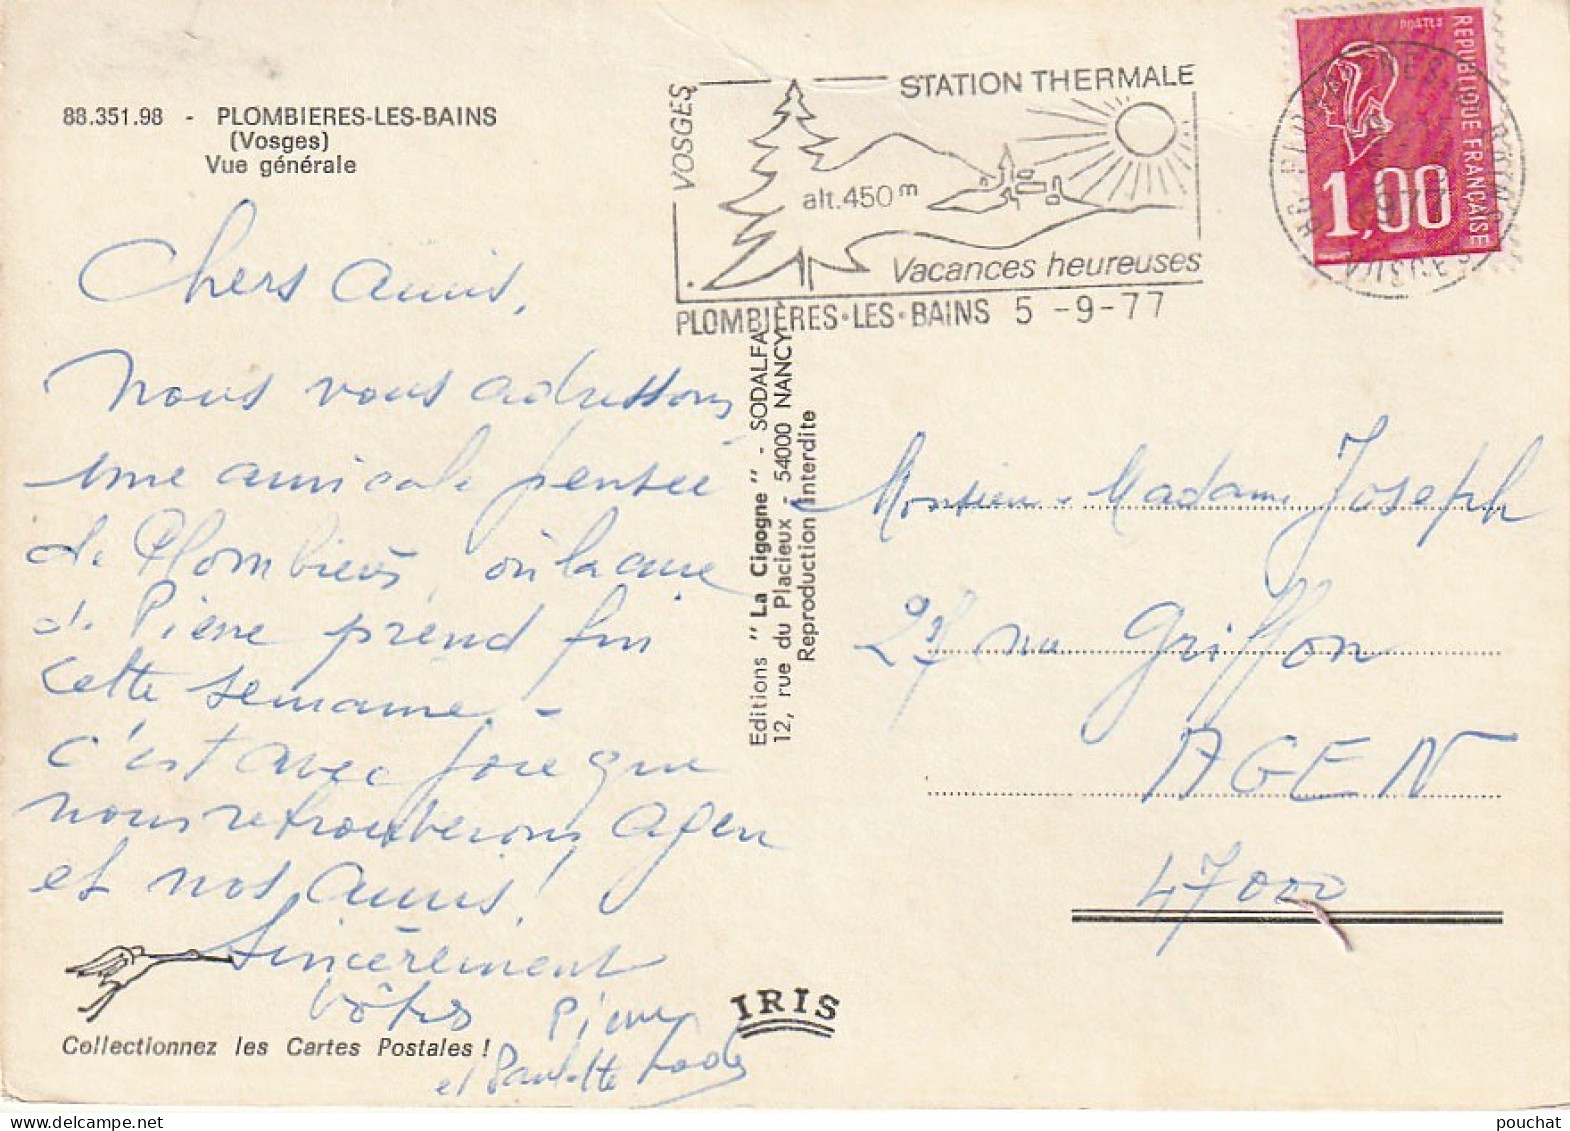 88.351.98 - PLOMBIERES-LES-BAINS
(Vosges)
Vue générale
VOSGES
STATION THERMALE
alt.450 m
Vacances heureuses
PLOMBIÈRES·LES·BAINS 5 -9-77
POSTES
REPUBLIQUE FRANÇAISE
1,00
VOSGES
Chers amis,
Nous vous adressons
une amicale pensée
de Plombières, où la cure
de Pierre prend fin
cette semaine. -
C'est avec joie que
nous retrouverons Agen
et nos amis !
Sincèrement
vôtres Pierre
et Paulette
Editions " La Cigogne " - SODALFA
12, rue du Placieux - 54000 NANCY
Reproduction interdite
Monsieur - Madame Joseph
rue Griffon
AGEN
47000
IRIS
Collectionnez les Cartes Postales !
pouchat